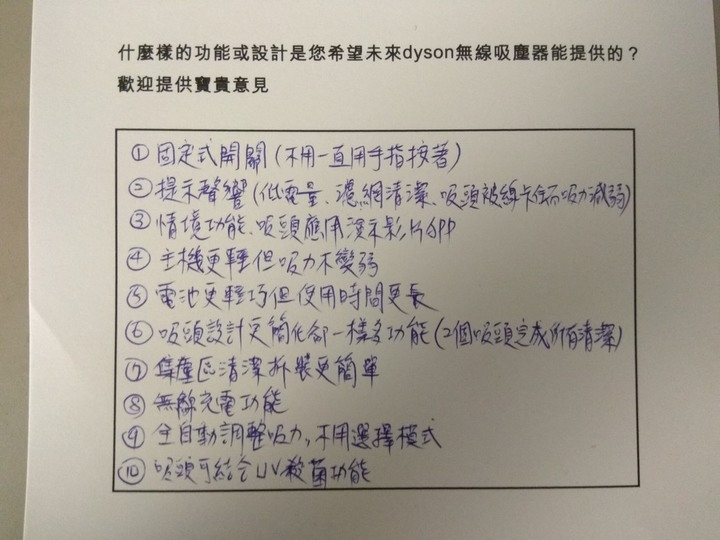 什麼樣的功能或設計是您希望未來dyson無線吸塵器能提供的？
歡迎提供寶貴意見
① 固定式開關 (不用一直用手指按著)
② 提示聲響 (低電量、濾網清潔、吸頭被線卡住而吸力減弱)
③ 情境功能、吸頭應用演示影片APP
④ 主機更輕但吸力不變弱
⑤ 電池更輕巧但使用時間更長
⑥ 吸頭設計更簡化卻一樣多功能 (2個吸頭完成所有清潔)
⑦ 集塵區清潔拆裝更簡單
⑧ 無線充電功能
⑨ 全自動調整吸力，不用選擇模式
⑩ 吸頭可結合UV殺菌功能